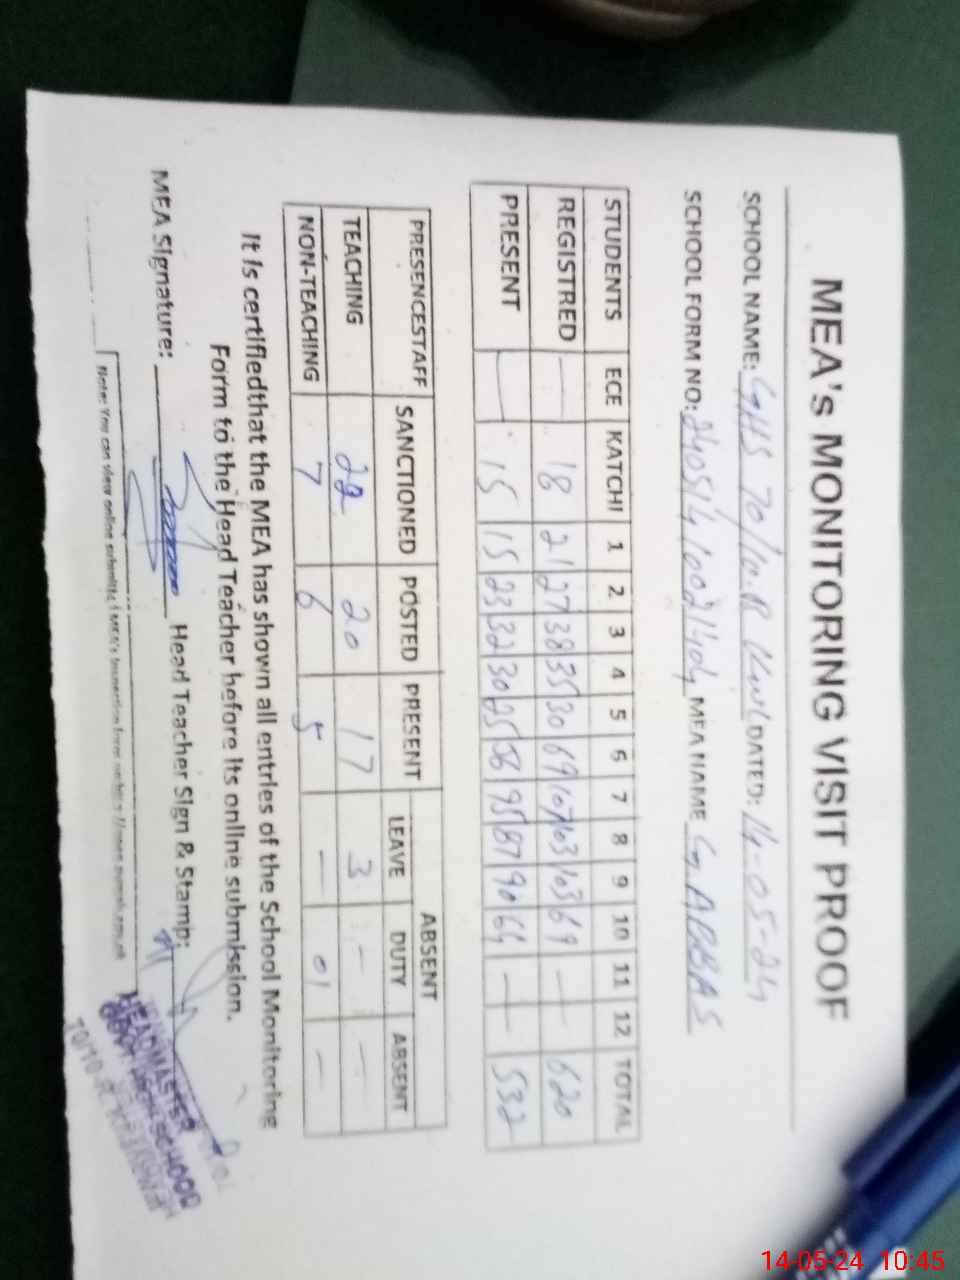 MEA's MONITORING VISIT PROOF
SCHOOL NAME: GHS 70/10.R KWL DATED: 14-05-24
SCHOOL FORM NO: MEA NAME G. ABBAS
STUDENTS ECE KATCHI 1 2 3 4 5 6 7 8 9 10 11 12 TOTAL
REGISTRED — 18 21 27 38 35 30 69 107 103 103 69 — — 620
PRESENT — 15 15 23 32 30 25 56 95 87 90 64 — — 532
PRESENCESTAFF SANCTIONED POSTED PRESENT ABSENT
LEAVE DUTY ABSENT
TEACHING 22 20 17 3 — —
NON-TEACHING 7 6 5 — 01 —
It Is certifiedthat the MEA has shown all entries of the School Monitoring
Form to the Head Teacher before its online submission.
MEA Signature: Head Teacher Sign & Stamp:
Note: You can view online
HEADMASTER
HIGH SCHOOL
70/10-R
14-05-24 10:45